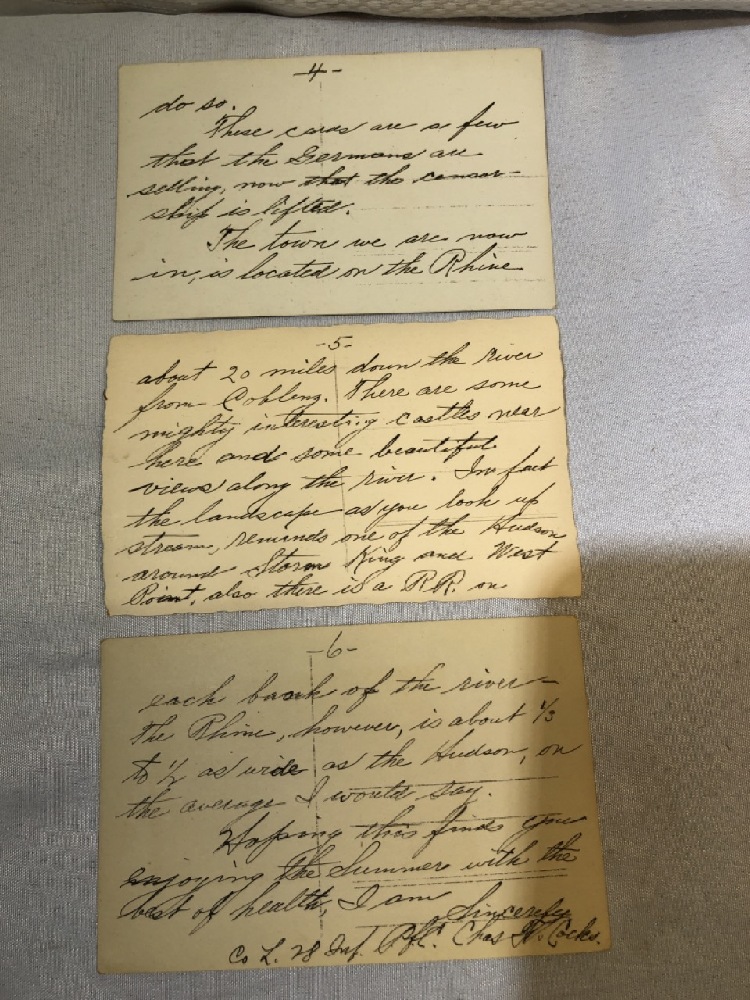 -4-
do so.
These cards are a few
that the Germans are
selling, now that the censor-
ship is lifted.
The town we are now
in, is located on the Rhine
-5-
about 20 miles down the river
from Coblenz. There are some
mighty interesting castles near
here and some beautiful
views along the river. In fact
the landscape as you look up
stream, reminds one of the Hudson
around Storm King and West
Point, also there is a R.R. on
-6-
each bank of the river-
The Rhine, however, is about 1/3
to 1/2 as wide as the Hudson, on
the average I would say.
Hoping this finds you
enjoying the Summer with the
best of health, I am
Sincerely
Co L. 28 Inf. Pfc. Chas W. Cocks.